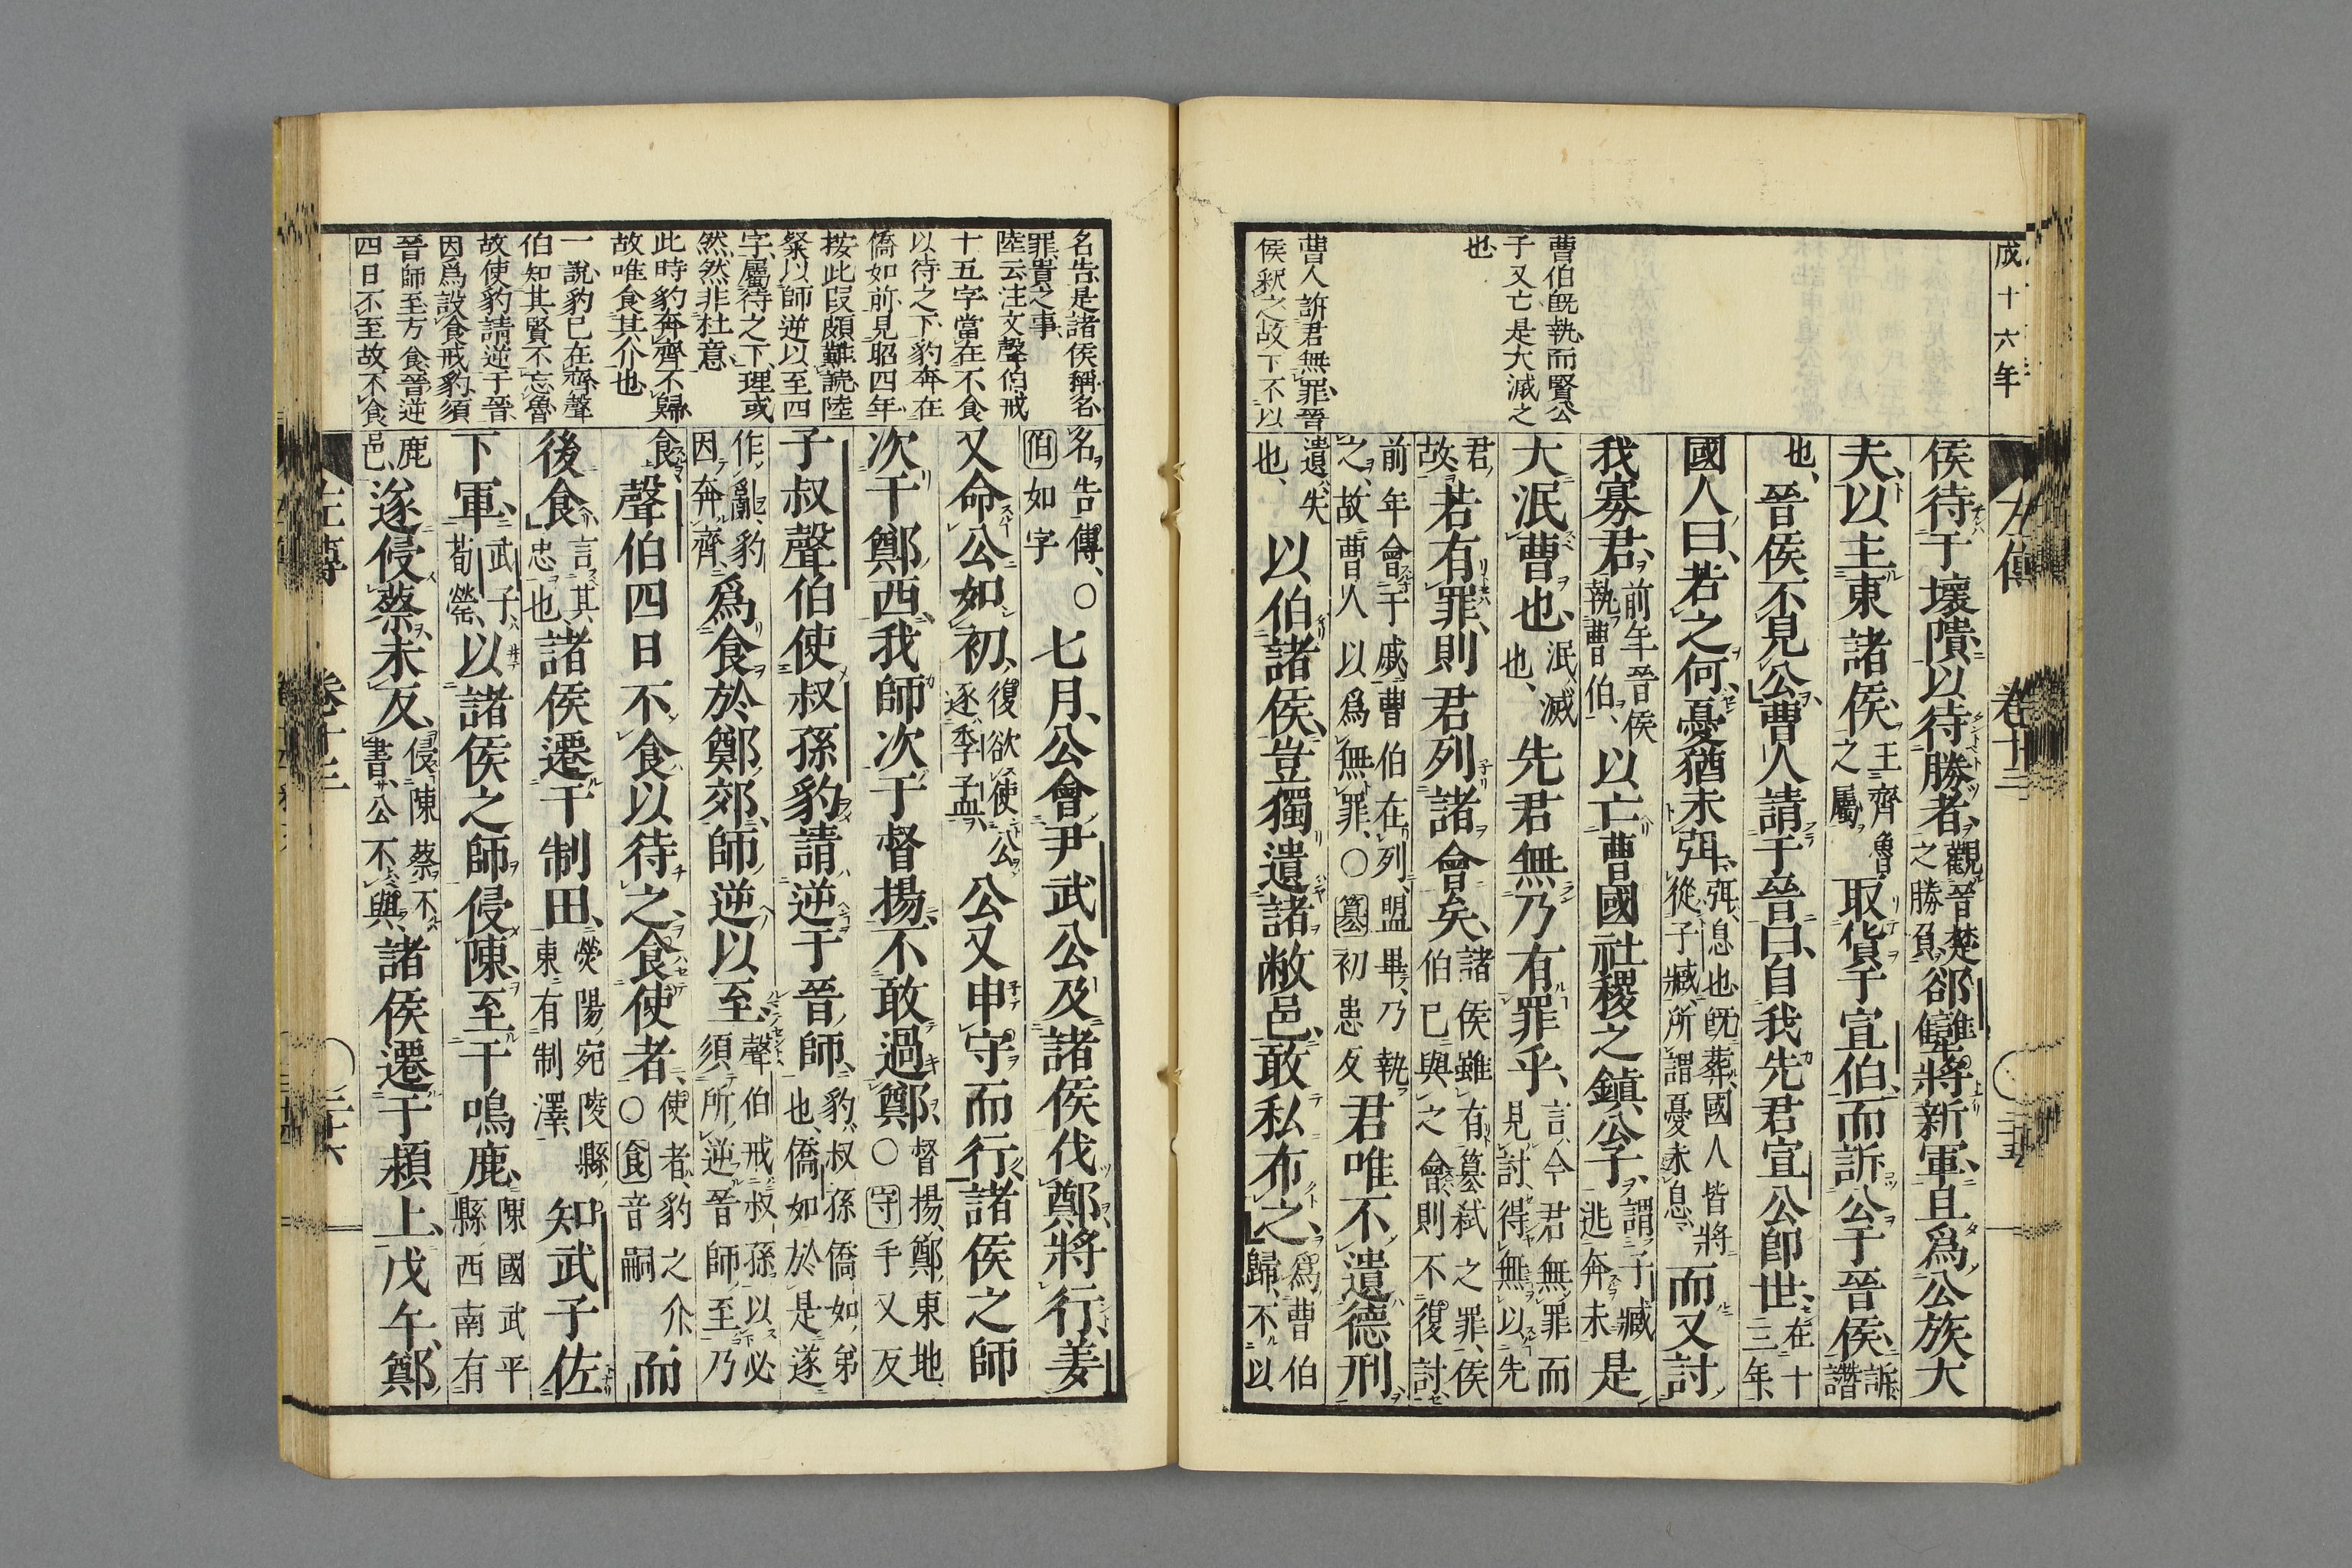 成十六年
曹伯既執而賢公
子又亡是大滅之
也
曹人訴君無罪晉
侯釈之故下不以
侯待于壞隤以待勝者觀晉楚之勝負郤犨將新軍且爲公族大
夫以主東諸侯主齊魯之屬取貨于宣伯而訴公于晉侯訴譖
也晉侯不見公曹人請于晉曰自我先君宣公即世在十三年
國人曰若之何憂猶未弭弭息也既葬國人皆將從子臧所謂憂未息而又討
我寡君前年晉侯執曹伯以亡曹國社稷之鎮公子謂子臧逃奔未是
大泯曹也泯滅也先君無乃有罪乎言今君無罪而見討得無以先
君故若有罪則君列諸會矣諸侯雖有簒弑之罪侯伯已與之會則不復討
前年會于戚曹伯在列盟畢乃執之故曹人以爲無罪○簒初患反君唯不遺德刑
遺失也以伯諸侯豈獨遺諸敝邑敢私布之爲曹伯歸不以
名告是諸侯稱名
罪貴之事
陸云注文聲伯戒
十五字當在不食
以待之下豹奔在
僑如前見昭四年
按此段頗難読陸
粲以師逆以至四
字屬待之下理或
然然非杜意
此時豹奔齊不歸
故唯食其介也
一說豹已在齊聲
伯知其賢不忘魯
故使豹請逆于晉
因爲設食戒豹須
晉師至方食晉逆
四日不至故不食
名告傳○伯如字七月公會尹武公及諸侯伐鄭將行姜
又命公如初復欲使公逐季孟公又申守而行諸侯之師
次于鄭西我師次于督揚不敢過鄭督揚鄭東地○守手又反
子叔聲伯使叔孫豹請逆于晉師豹叔孫僑如弟也僑如於是遂
作亂豹因奔齊爲食於鄭郊師逆以至聲伯戒叔孫以必須所逆晉師至乃
食聲伯四日不食以待之食使者使者豹之介○食音嗣而
後食言其忠也諸侯遷于制田滎陽宛陵縣東有制澤知武子佐
下軍武子荀罃以諸侯之師侵陳至于鳴鹿陳國武平縣西南有
鹿邑遂侵蔡未反侵陳蔡不書公不與諸侯遷于潁上戊午鄭